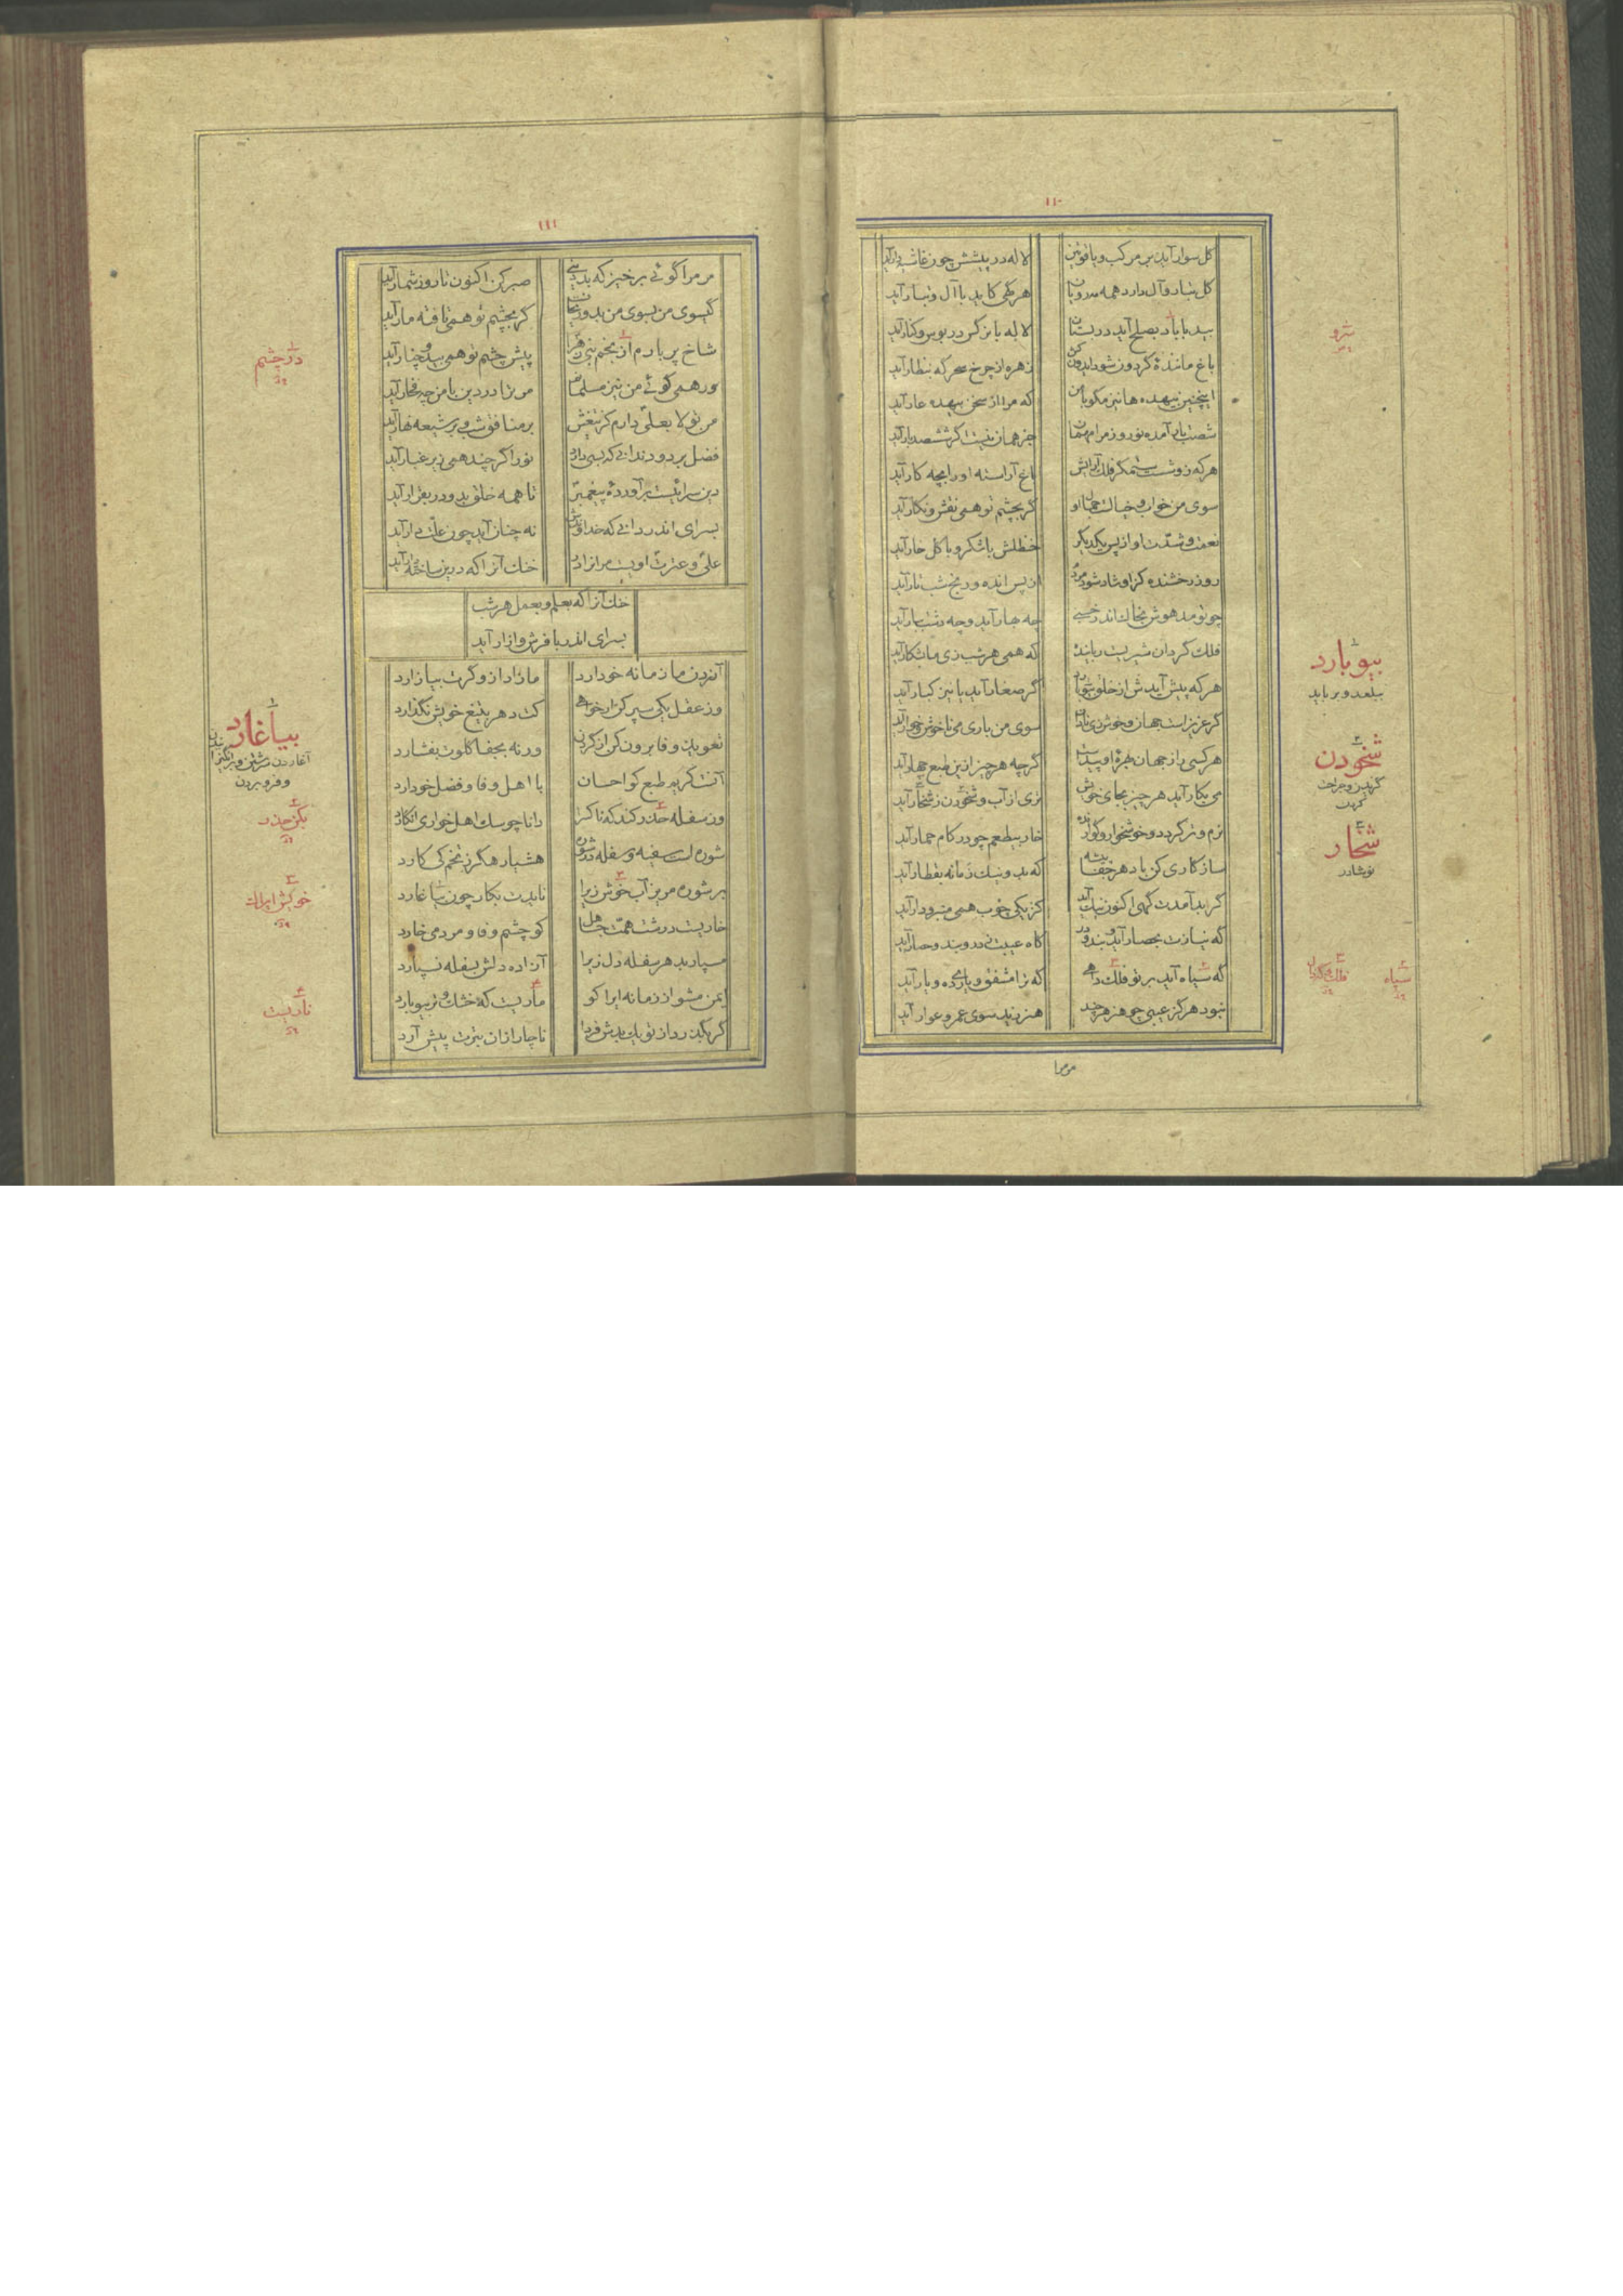 ۱۱۰
گل سوار آید بر مرکب و یاقوتین لاله در پیشش چون غاشیه‌دار آید
گل تبار و آل دارد همه مه رویان هر گهی کاید با آل و تبار آید
بید با باد بصلح آید در بستان لاله با نرگس در بوس و کنار آید
باغ مانندهٔ گردون شود ایدون کش زهره از چرخ سحرگه بنظار آید
اینچنین بیهده‌ها نیز مگو با من که مرا از سخن بیهده عار آید
شصت بار آمده نوروز مرا مهمان جز همان نیست اگر ششصد بار آید
هرکه زو شست ستمگر فلک آرایش باغ آراسته او را بچه کار آید
سوی من خواب و خیالست جمال او گر بچشم تو همی نقش و نگار آید
نعمت و شدّت او از پس یکدیگر حنظلش با شکر و با گل خار آید
روز رخشنده کزو شاد شود مردم از پس انده و رنج شب تار آید
چو تو مدهوش بخاک اندر خسبی چه بهار آید و چه دشت ببار آید
فلک گردان شیریست رباینده که همی هر شب زی ما بشکار آید
هرکه پیش آیدش از خلق بیوبارد گر صغار آید یا نیز کبار آید
گر عزیز است جهان و خوش زی نادان سوی من باری می ناخوش و خوار آید
هر کسی را ز جهان بهرهٔ او پیداست گرچه هر چیز ازین طبع چهار آید
می بکار آید هر چیز بجای خویش تری از آب و شخودن ز شخار آید
نرم و تر گردد و خوشخوار و گوارنده خار بیطعم چو در کام حمار آید
سازگاری کن با دهر جفاپیشه که بد و نیک زمانه بقطار آید
گر بد آمدت گهی اکنون نیک آید کز یکی چوب همی منبر و دار آید
گه نیازت بحصار آید و بند و در گاه عیبت ز در و بند و حصار آید
گه سپاه آید بر تو فلک داهی گه ترا مشفق و یاری‌ده و یار آید
نبود هرگز عیبی چو هنر هرچند هنر زید سوی عمرو عوار آید
مرمرا
بیوبارد
ببلعد و برباید
شخودن
شخار
نوشادر
سپاه
۱۱۱
مر مرا گوئی برخیز که بددینی صبر کن اکنون تا روز شمار آید
گیسوی من بسوی من ند و ریحانست گر بچشم تو همی تافته مار آید
شاخ پر بارم از چشم بنی زهرا پیش چشم تو همی بید و چنار آید
ور همی گوئی من نیز مسلمانم مر ترا در دین با من چه فخار آید
من تولا بعلی دارم کز تیغش بر منافق شب و بر شیعه نهار آید
فضل بر دود ندانی که بسی دارد نور اگر چند همی زیر غبار آید
دین سرائیست برآوردهٔ پیغمبر تا همه خلق بدو در بقرار آید
بسرای اندر دانی که خداوندش نه چنان آید چون غلّه گذار آید
علی و عترت اویست مر آنرا در خنک آنرا که درین ساخته دار آید
خنک آنرا که بعلم و بعمل هر شب
بسرای اندر با فرش و ازار آید
آزردن ما زمانه خو دارد مازار ازو گرت بیازارد
وز عقل یکی سپر کن ار خواهی کت دهر بتیغ خویش نگذارد
تعویذ وفا برون کن از گردن ورنه بجفا گلوت بفشارد
آنست کریم طبع کو احسان با اهل وفا و فضل خو دارد
وز سفله حذر کند که ناکس را دانا چو سگ اهل خواری انگارد
شوره است سفیه و سفله در شوره هشیار هگرز تخم کی کارد
بر شوره مریز آب خوش زیرا نایدت بکار چون بیاغارد
خاریست درشت همت جاهل کو چشم وفا و مردمی خارد
مسپار بهر سفله دل زیرا آزاده دلش بسفله نسپارد
ایمن مشو از زمانه ایرا کو ماریست که خشک و تر بیوبارد
گر بگذرد از تو یک بدش فردا ناچار ازان بترت پیش آرد
در چشم
بیاغارد
و فرو بردن
بکن حذر
ناریست